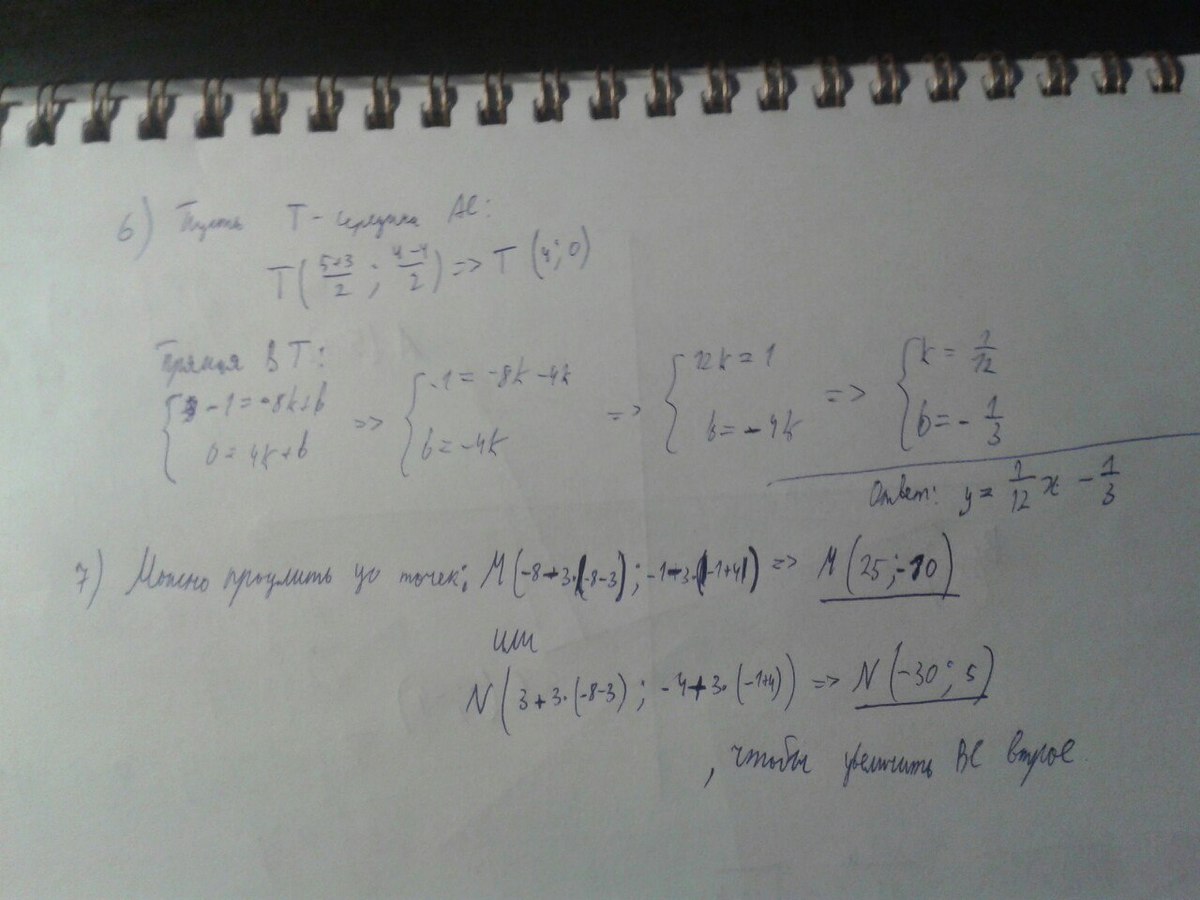 6) Пусть T - середина AC:
T(5+3/2 ; 4-4/2) => T (4; 0)
Прямая BT:
{ -1 = -8k+b => { -1 = -8k -4k => { 12k = 1 => { k = 1/12
0 = 4k+b b = -4k b = -4k b = - 1/3
Ответ: y = 1/12 x - 1/3
7) Можно продлить до точек: M(-8-3·(-8-3); -1-3·(-1+4)) => M(25; -10)
или
N(3+3·(-8-3); -4+3·(-1+4)) => N(-30; 5)
, чтобы увеличить BC втрое